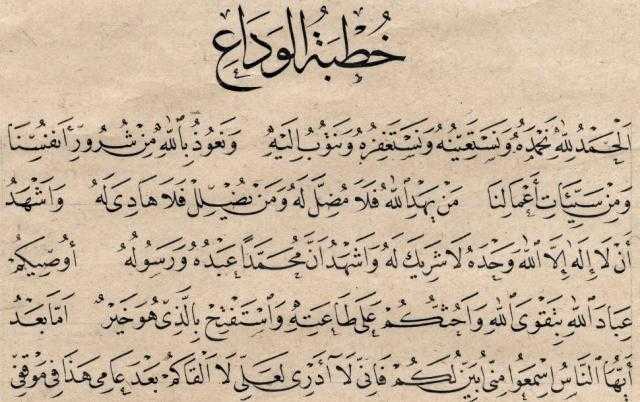 خُطْبَةُ الْوَدَاعِ
اَلْحَمْدُ لِلّٰهِ نَحْمَدُهُ وَنَسْتَعِينُهُ وَنَسْتَغْفِرُهُ وَنَتُوبُ اِلَيْهِ وَنَعُوذُ بِاللّٰهِ مِنْ شُرُورِ أَنْفُسِنَا
وَمِنْ سَيِّئَاتِ أَعْمَالِنَا مَنْ يَهْدِ اللّٰهُ فَلَا مُضِلَّ لَهُ وَمَنْ يُضْلِلْ فَلَا هَادِىَ لَهُ وَاَشْهَدُ
أَنْ لَا إِلٰهَ اِلَّا اللّٰهُ وَحْدَهُ لَا شَرِيكَ لَهُ وَاَشْهَدُ اَنَّ مُحَمَّدًا عَبْدُهُ وَرَسُولُهُ أُوصِيكُمْ
عِبَادَ اللّٰهِ بِتَقْوَى اللّٰهِ وَاَحُثُّكُمْ عَلَى طَاعَتِهِ وَاَسْتَفْتِحُ بِالَّذِى هُوَ خَيْرٌ اَمَّا بَعْدُ
أَيُّهَا النَّاسُ اِسْمَعُوا مِنِّى اُبَيِّنْ لَكُمْ فَاِنِّى لَا أَدْرِى لَعَلِّى لَا اَلْقَاكُمْ بَعْدَ عَامِى هٰذَا فِى مَوْقِفِى